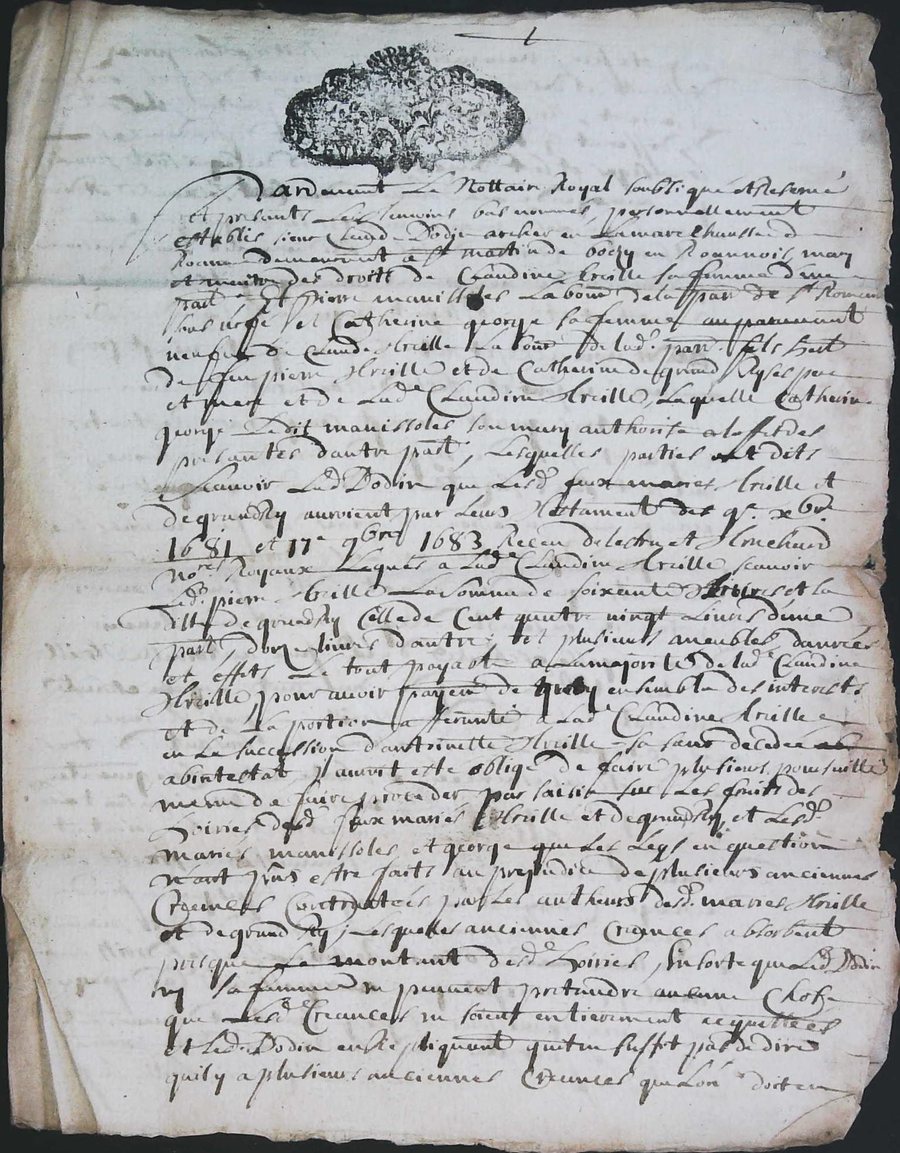 Pardevant Le Nottaire Royal soubsigné et Reservé
et presents Les temoins bas nommés, personnellement
establis sieur Claude Dodin archer en la marechaussee de
Roanne demeurant a St martin de boisy en Rouannois, mary
et maitre des droits de Claudine Areille sa femme d'une
part Et pierre manissoles Laboureur de la parr. de St Romain
soubs urfé et Catherine george sa femme auparavant
de Claude Areille Laboureur de lad. parr. fils
de feu pierre Areille et de Catherine degrand Ry ses pere
et mere et de Lad. Claudine Areille, Laquelle Catherine
george Ledit manissoles son mary authorise a leffet des
presantes d'autre part, Lesquelles parties ont dits
Scavoir Led. Dodin que Lesd. feux maries Areille et
degrandRy auroient par Leurs testament des 9e xbre
1681 et 17e 9bre 1683 Receu
Nores Royaux Legués a Lad. Claudine Areille scavoir
Led. pierre Areille La Somme de soixante livres et la
ditte degrandRy Celle de Cent quatre vingt Livres d'une
part, d'onze livres d'autre, et plusieurs meubles danrées
et effets Le tout payable a La majorité de lad. Claudine
Areille, pour avoir payement de quoy ensemble des interests
et de La portion afferante a Lad. Claudine Areille
en La succession d'anthoinette Areille sa sœur decedée
abintestat, Il auroit esté obligé de faire plusieurs poursuittes
meme de faire proceder par saisie sur Les fruits des
hoiries desd. feux maries Areille et degrandRy, et Lesd.
maries manissoles et george que Les Legs en question
n'ont pus estre faits au prejudice de plusieurs anciennes
Creances Contractées par Les autheurs desd. maries Areille
et degrandRy, Lesquelles anciennes Creances absorbent
presque Le montant desd. hoiries, En sorte que Led. Dodin
ny sa femme ne peuvent pretandre aucune Chose
que Lesd. Creances ne soient entierement acquittées
et Led. Dodin en Repliquant qu'il ne suffit pas de dire
qu'il y a plusieurs anciennes Creances que Lon doit en